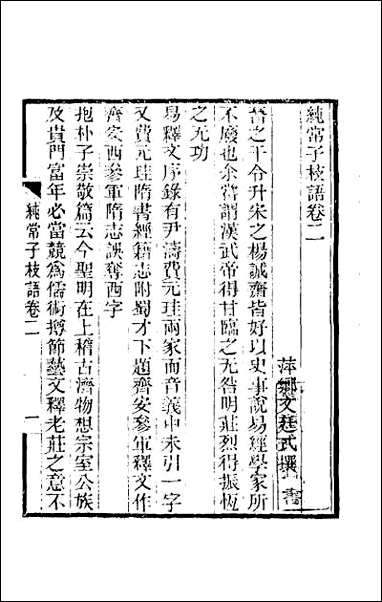 純常子枝語卷二
萍鄉文廷式撰
晉之干令升朱之楊誠齋皆好以史事說易經學家所
不廢也余嘗謂漢武帝得甘臨之无咎明莊烈得振恆
之无功
易釋文序錄有尹濤費元珪兩家而音義中未引一字
又費元珪隋書經籍志附蜀才下題齊安參軍釋文作
齊安西參軍隋志誤奪西字
抱朴子崇敬篇云今聖明在上稽古濟物想宗室公族
及貴門富年必當競爲儒術撙節藝文釋老莊之意不
純常子枝語卷二
一